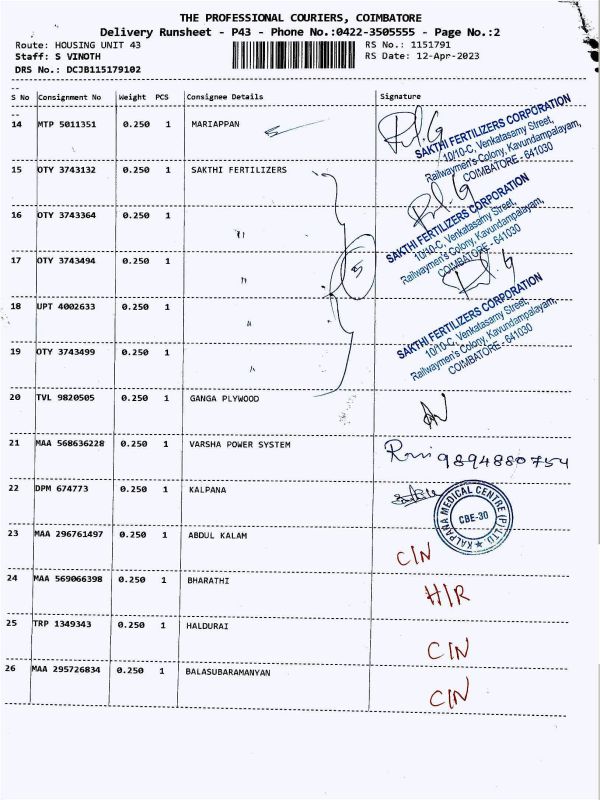 THE PROFESSIONAL COURIERS, COIMBATORE
Delivery Runsheet - P43 - Phone No.:0422-3505555 - Page No.:2
Route: HOUSING UNIT 43 RS No.: 1151791
Staff: S VINOTH RS Date: 12-Apr-2023
DRS No.: DCJB115179102
S No Consignment No Weight PCS Consignee Details Signature
14 MTP 5011351 0.250 1 MARIAPPAN
SAKTHI FERTILIZERS CORPORATION
10/10-C, Venkatasamy Street,
Railwaymen's Colony, Kavundampalayam,
COIMBATORE - 641030
15 OTY 3743132 0.250 1 SAKTHI FERTILIZERS
16 OTY 3743364 0.250 1 "
SAKTHI FERTILIZERS CORPORATION
10/10-C, Venkatasamy Street,
Railwaymen's Colony, Kavundampalayam,
COIMBATORE - 641030
17 OTY 3743494 0.250 1 " 5
18 UPT 4002633 0.250 1 "
SAKTHI FERTILIZERS CORPORATION
10/10-C, Venkatasamy Street,
Railwaymen's Colony, Kavundampalayam,
COIMBATORE - 641030
19 OTY 3743499 0.250 1 "
20 TVL 9820505 0.250 1 GANGA PLYWOOD
21 MAA 568636228 0.250 1 VARSHA POWER SYSTEM Rani 9894880754
22 DPM 674773 0.250 1 KALPANA
KALPANA MEDICAL CENTRE (P) LTD
CBE-30
23 MAA 296761497 0.250 1 ABDUL KALAM CIN
24 MAA 569066398 0.250 1 BHARATHI H/R
25 TRP 1349343 0.250 1 HALDURAI CIN
26 MAA 295726834 0.250 1 BALASUBARAMANYAN CIN